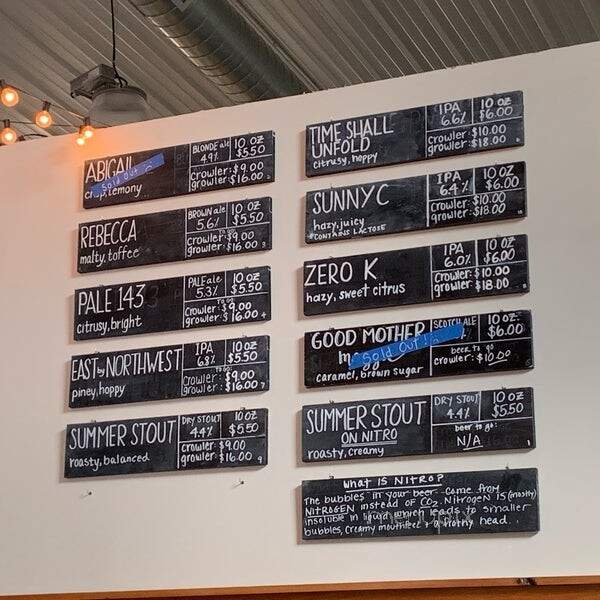 ABIGAIL
Sold Out
crisp, lemony
BLONDE ale
4.9%
10 oz
$5.50
crowler: $9.00
growler: $16.00
REBECCA
malty, toffee
BROWN ale
5.6%
10 oz
$5.50
TO GO:
crowler: $9.00
growler: $16.00
PALE 143
citrusy, bright
PALE ale
5.3%
10 oz
$5.50
TO GO:
crowler: $9.00
growler: $16.00
EAST by NORTHWEST
piney, hoppy
IPA
6.8%
10 oz
$5.50
TO GO:
crowler: $9.00
growler: $16.00
SUMMER STOUT
roasty, balanced
DRY STOUT
4.4%
10 oz
$5.50
crowler: $9.00
growler: $16.00
TIME SHALL
UNFOLD
citrusy, hoppy
IPA
6.6%
10 oz
$6.00
crowler: $10.00
growler: $18.00
SUNNY C
hazy, juicy
*CONTAINS LACTOSE
IPA
6.4%
10 oz
$6.00
crowler: $10.00
growler: $18.00
ZERO K
hazy, sweet citrus
IPA
6.0%
10 oz
$6.00
crowler: $10.00
growler: $18.00
GOOD MOTHER
Sold Out!
caramel, brown sugar
SCOTCH ALE
10 oz
$6.00
beer to go
crowler: $10.00
SUMMER STOUT
ON NITRO
roasty, creamy
DRY STOUT
4.4%
10 oz
$5.50
beer to go:
N/A
What IS NITRO?
The bubbles in your beer come from
NITROGEN instead of CO2. Nitrogen is (mostly)
insoluble in liquid which leads to smaller
bubbles, creamy mouthfeel + a frothy head.